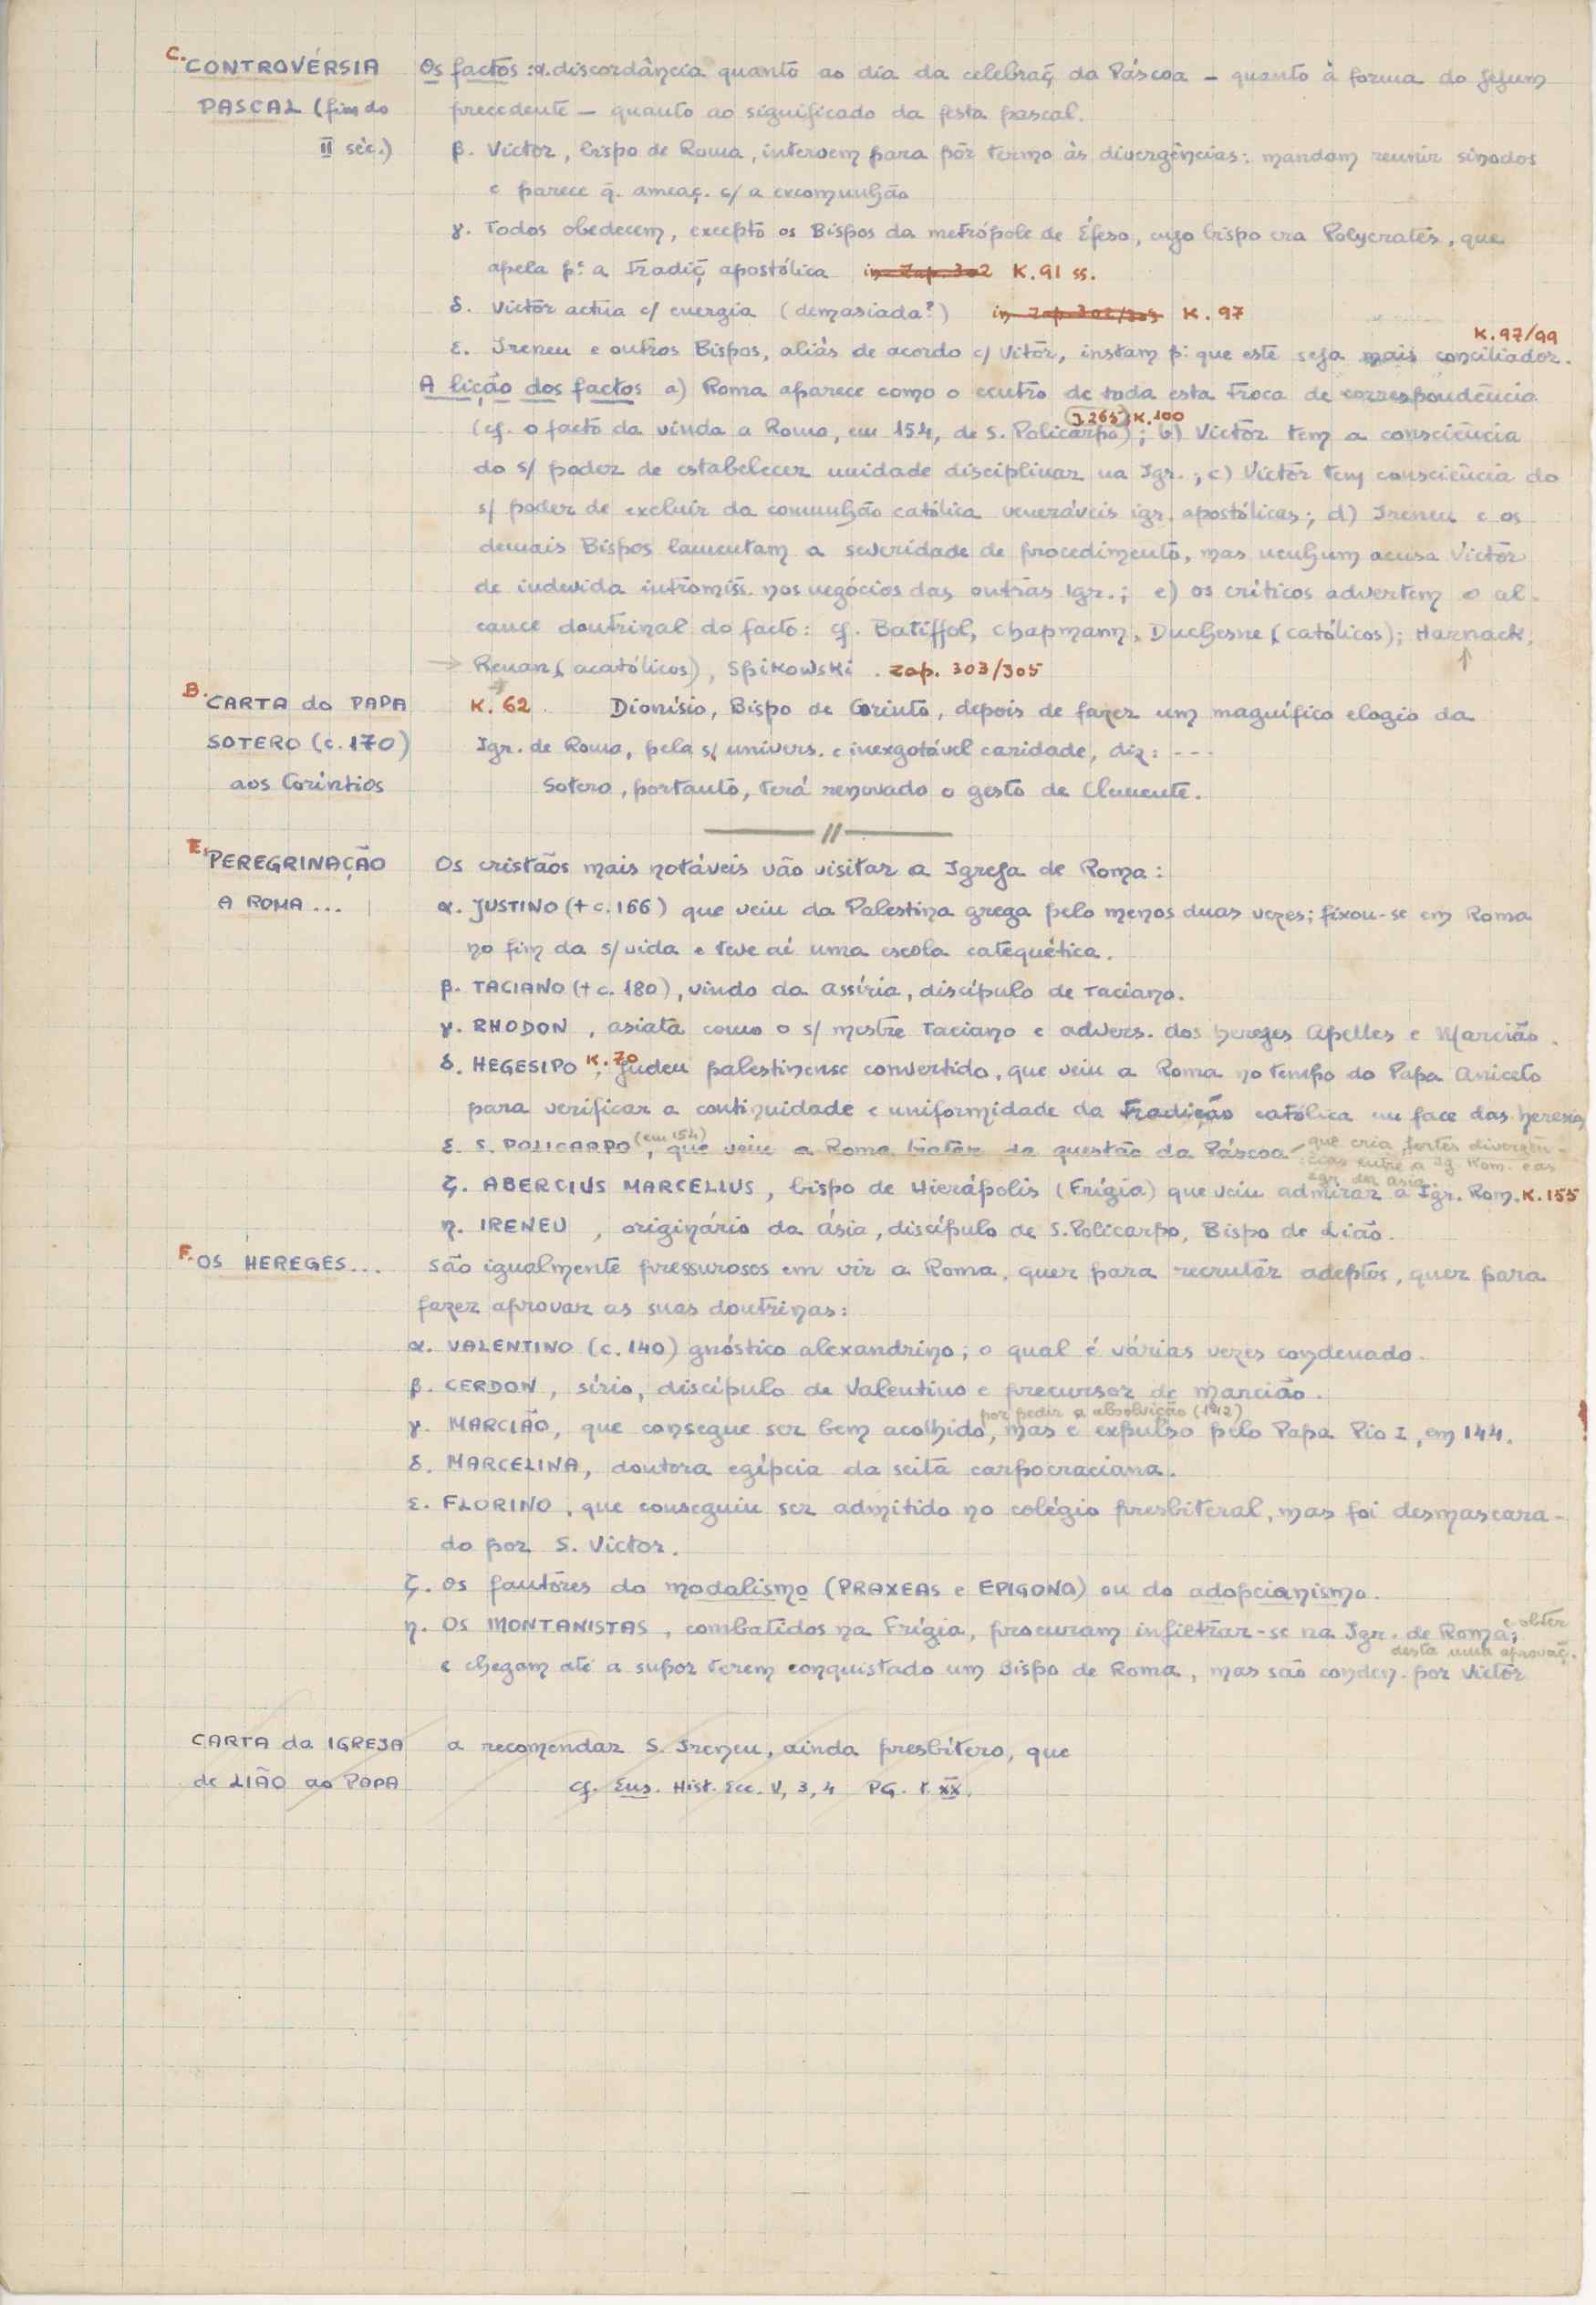 C. CONTROVÉRSIA Os factos: α. discordância quanto ao dia da celebraç̃ da Páscoa – quanto à forma do jejum
PASCAL (fim do precedente – quanto ao significado da festa pascal.
II séc.) β. Victor, bispo de Roma, intervem para pôr termo às divergências: mandam reunir sínodos
e parece q̃. ameaç. c/ a excomunhão
γ. Todos obedecem, excepto os Bispos da metrópole de Éfeso, cujo bispo era Polycrates, que
apela pª a Tradiç̃ apostólica in Zap. 302 K. 91 ss.
δ. Victor actua c/ energia (demasiada?) in Zap. 302/303 K. 97
K. 97/99
ε. Ireneu e outros Bispos, aliás de acordo c/ Vitor, instam pª que este seja mais conciliador.
A lição dos factos a) Roma aparece como o centro de toda esta troca de correspondência
J 265 K. 100
(cf. o facto da vinda a Roma, em 154, de S. Policarpo); b) Victor tem a consciência
do s/ poder de estabelecer unidade disciplinar na Igr.; c) Victor tem consciência do
s/ poder de excluir da comunhão católica veneráveis igr. apostólicas; d) Ireneu e os
demais Bispos lamentam a severidade de procedimento, mas nenhum acusa Victor
de indevida intromiss̃. nos negócios das outras Igr.; e) os críticos advertem o al-
cance doutrinal do facto: cf. Batiffol, Chapmann, Duchesne (católicos); Harnack,
→ Renan (acatólicos), Spikowski. Zap. 303/305
B. CARTA do PAPA K. 62 Dionísio, Bispo de Corinto, depois de fazer um magnífico elogio da
SOTERO (c. 170) Igr. de Roma, pela s/ univers. e inexgotável caridade, diz: ---
aos Coríntios Sotero, portanto, terá renovado o gesto de Clemente.
E. PEREGRINAÇÃO Os cristãos mais notáveis vão visitar a Igreja de Roma:
A ROMA... α. JUSTINO († c. 166) que veiu da Palestina grega pelo menos duas vezes; fixou-se em Roma
no fim da s/ vida e teve aí uma escola catequética.
β. TACIANO († c. 180), vindo da Assíria, discípulo de Taciano.
γ. RHODON, asiata como o s/ mestre Taciano e advers. dos hereges Apelles e Marcião.
δ. HEGESIPO K. 70, judeu palestinense convertido, que veiu a Roma no tempo do Papa Aniceto
para verificar a continuidade e uniformidade da Tradição católica em face das heresias
ε. S. POLICARPO (em 154), que veiu a Roma tratar da questão da Páscoa – que cria fortes divergên-
cias entre a Ig. Rom. e as
igr. da Ásia.
ζ. ABERCIUS MARCELLUS, bispo de Hierápolis (Frígia) que veiu admirar a Igr. Rom. K. 155
η. IRENEU, originário da Ásia, discípulo de S. Policarpo, Bispo de Lião.
F. OS HEREGES... são igualmente pressurosos em vir a Roma, quer para recrutar adeptos, quer para
fazer aprovar as suas doutrinas:
α. VALENTINO (c. 140) gnóstico alexandrino; o qual é várias vezes condenado.
β. CERDON, sírio, discípulo de Valentino e precursor de Marcião.
por pedir a absolvição (142)
γ. MARCIÃO, que consegue ser bem acolhido, mas é expulso pelo Papa Pio I, em 144.
δ. MARCELINA, doutora egípcia da seita carpocraciana.
ε. FLORINO, que conseguiu ser admitido no colégio presbiteral, mas foi desmascara-
do por S. Victor.
ζ. Os fautores do modalismo (PRAXEAS e EPIGONO) ou do adopcianismo.
η. Os MONTANISTAS, combatidos na Frígia, procuram infiltrar-se na Igr. de Roma; e obter
desta uma aprovaç̃.
e chegam até a supor terem conquistado um Bispo de Roma, mas são conden. por Victor
CARTA da IGREJA a recomendar S. Ireneu, ainda presbítero, que
de LIÃO ao PAPA cf. Eus. Hist. Ecc. V, 3, 4 PG. t. XX.